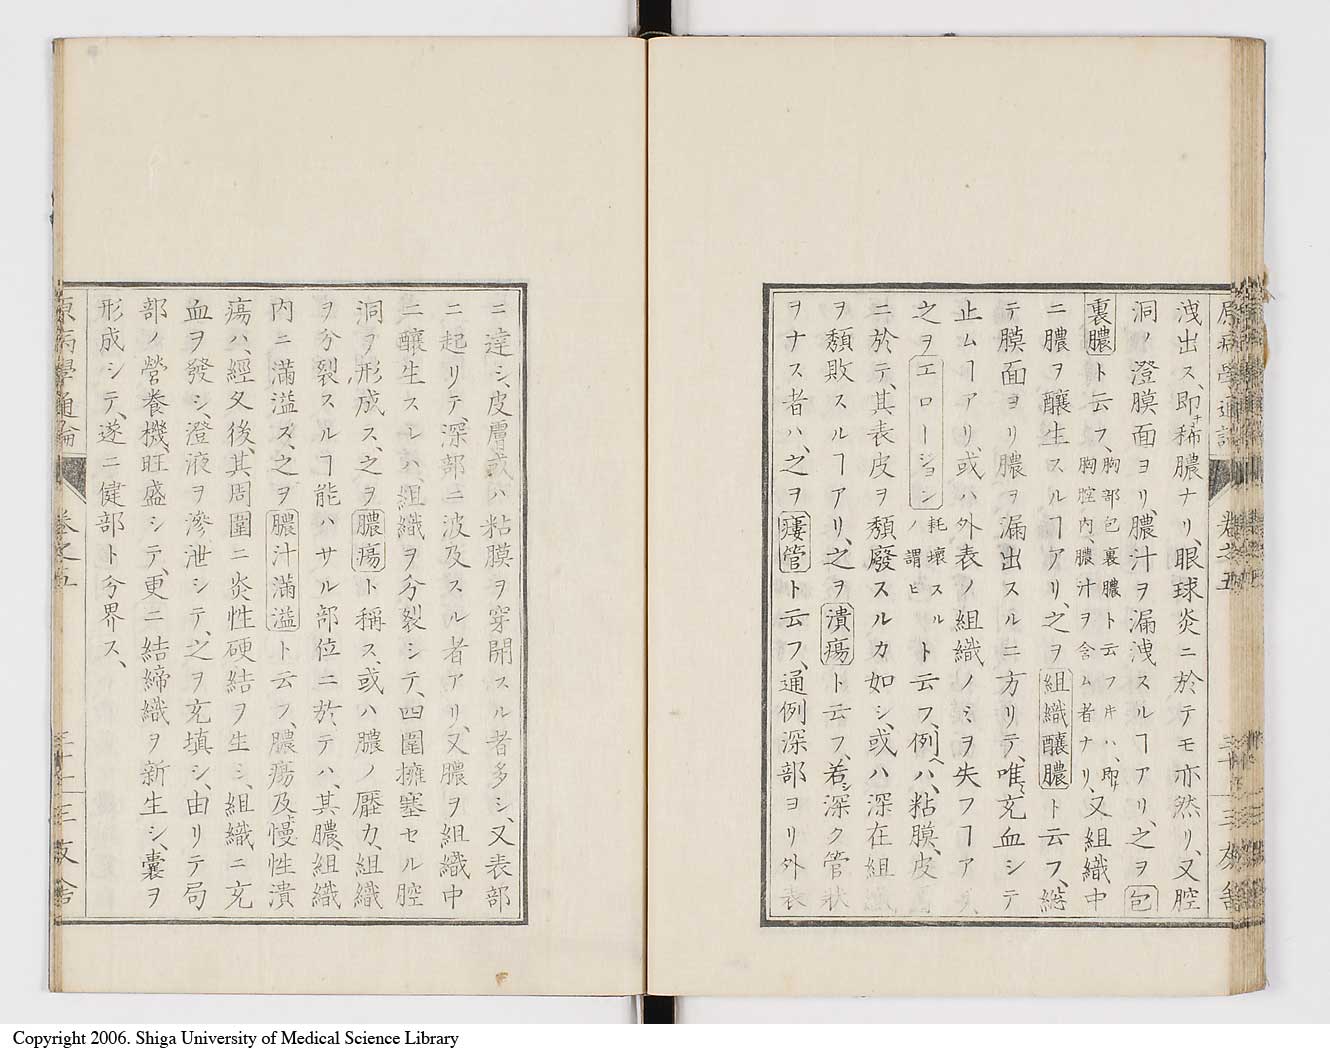 洩出ス、即チ稀膿ナリ、眼球炎ニ於テモ亦然リ、又腔
洞ノ澄膜面ヨリ、膿汁ヲ漏洩スルヿアリ、之ヲ包
裏膿ト云フ、胸部包裏膿ト云フキハ、即チ胸腔内、膿汁ヲ含ム者ナリ、又組織中
ニ膿ヲ釀生スルヿアリ、之ヲ組織釀膿ト云フ、總
テ膜面ヨリ膿ヲ漏出スルニ方リテ、唯充血シテ
止ムヿアリ、或ハ外表ノ組織ノミヲ失フヿア
之ヲエローションノ謂ヒ耗壊スルト云フ、例ヘハ、粘膜、皮
ニ於テ、其表皮ヲ頽廢スルカ如シ、或ハ深在組
ヲ頽敗スルヿアリ、之ヲ潰瘍ト云フ、若シ深ク管狀
ヲナス者ハ、之ヲ瘻管ト云フ、通例深部ヨリ外表
原病學通論
卷之五
三友舎
ニ達シ、皮膚或ハ粘膜ヲ穿開スル者多シ、又表部
ニ起リテ、深部ニ波及スル者アリ、又膿ヲ組織中
ニ釀生スレハ、組織ヲ分裂シテ、四圍擁塞セル腔
洞ヲ形成ス、之ヲ膿瘍ト稱ス、或ハ膿ノ壓力、組織
ヲ分裂スルヿ能ハサル部位ニ於テハ、其膿、組織
内ニ滿溢ス、之ヲ膿汁滿溢ト云フ、膿瘍及ヒ慢性潰
瘍ハ、經久後、其周圍ニ炎性硬結ヲ生シ、組織ニ充
血ヲ發シ、澄液ヲ滲泄シテ、之ヲ充填シ、由リテ局
部ノ營養機、旺盛シテ、更ニ結締織ヲ新生シ、嚢ヲ
形成シテ、遂ニ健部ト分界ス、
原病學通論
卷之五
三十一
三友舎
Copyright 2006. Shiga University of Medical Science Library